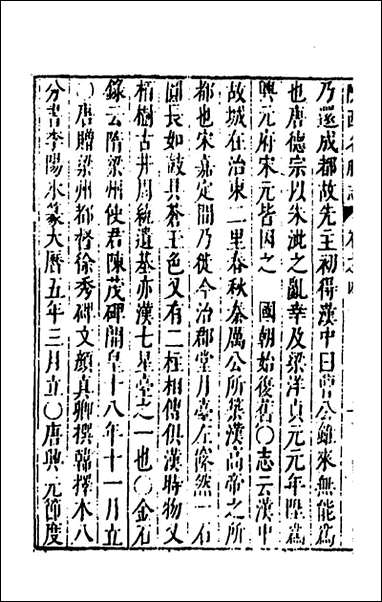 陝西名勝志 卷之四
乃還成都故先主初得漢中曰曹公雖來無能爲
也唐德宗以朱泚之亂幸及梁洋貞元元年陞爲
興元府宋元皆因之 國朝始復舊〇志云漢中
故城在治東一里春秋秦厲公所築漢高帝之所
都也宋嘉定間乃徙今治郡堂月臺左傍然一石
圓長如鼓具蒼玉色又有二柱相傳俱漢時物又
栢樹古井周繞遺基亦漢七星臺之一也〇金石
錄云隋梁州使君陳茂碑開皇十八年十一月立
〇唐贈梁州都督徐秀碑文顔真卿撰韓擇木八
分書李陽氷篆大曆五年三月立〇唐興元節度